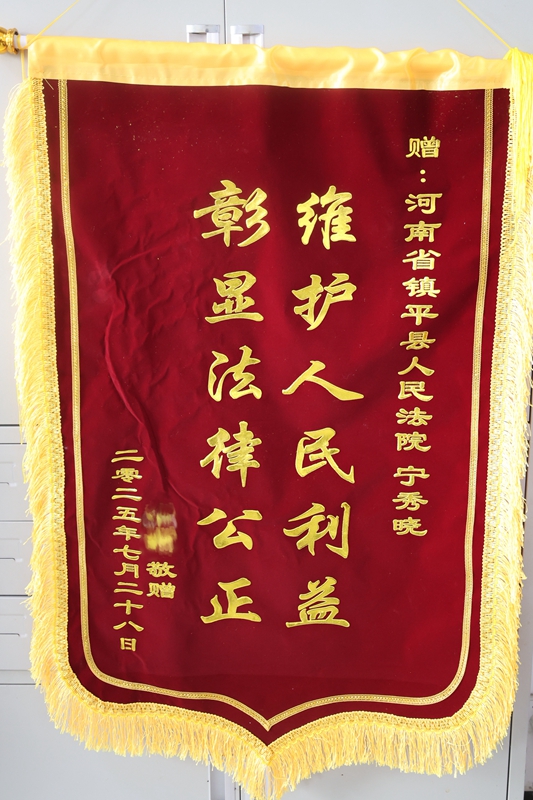 赠：河南省镇平县人民法院 宁秀晓
维护人民利益
彰显法律公正
敬赠
二零二五年七月二十八日